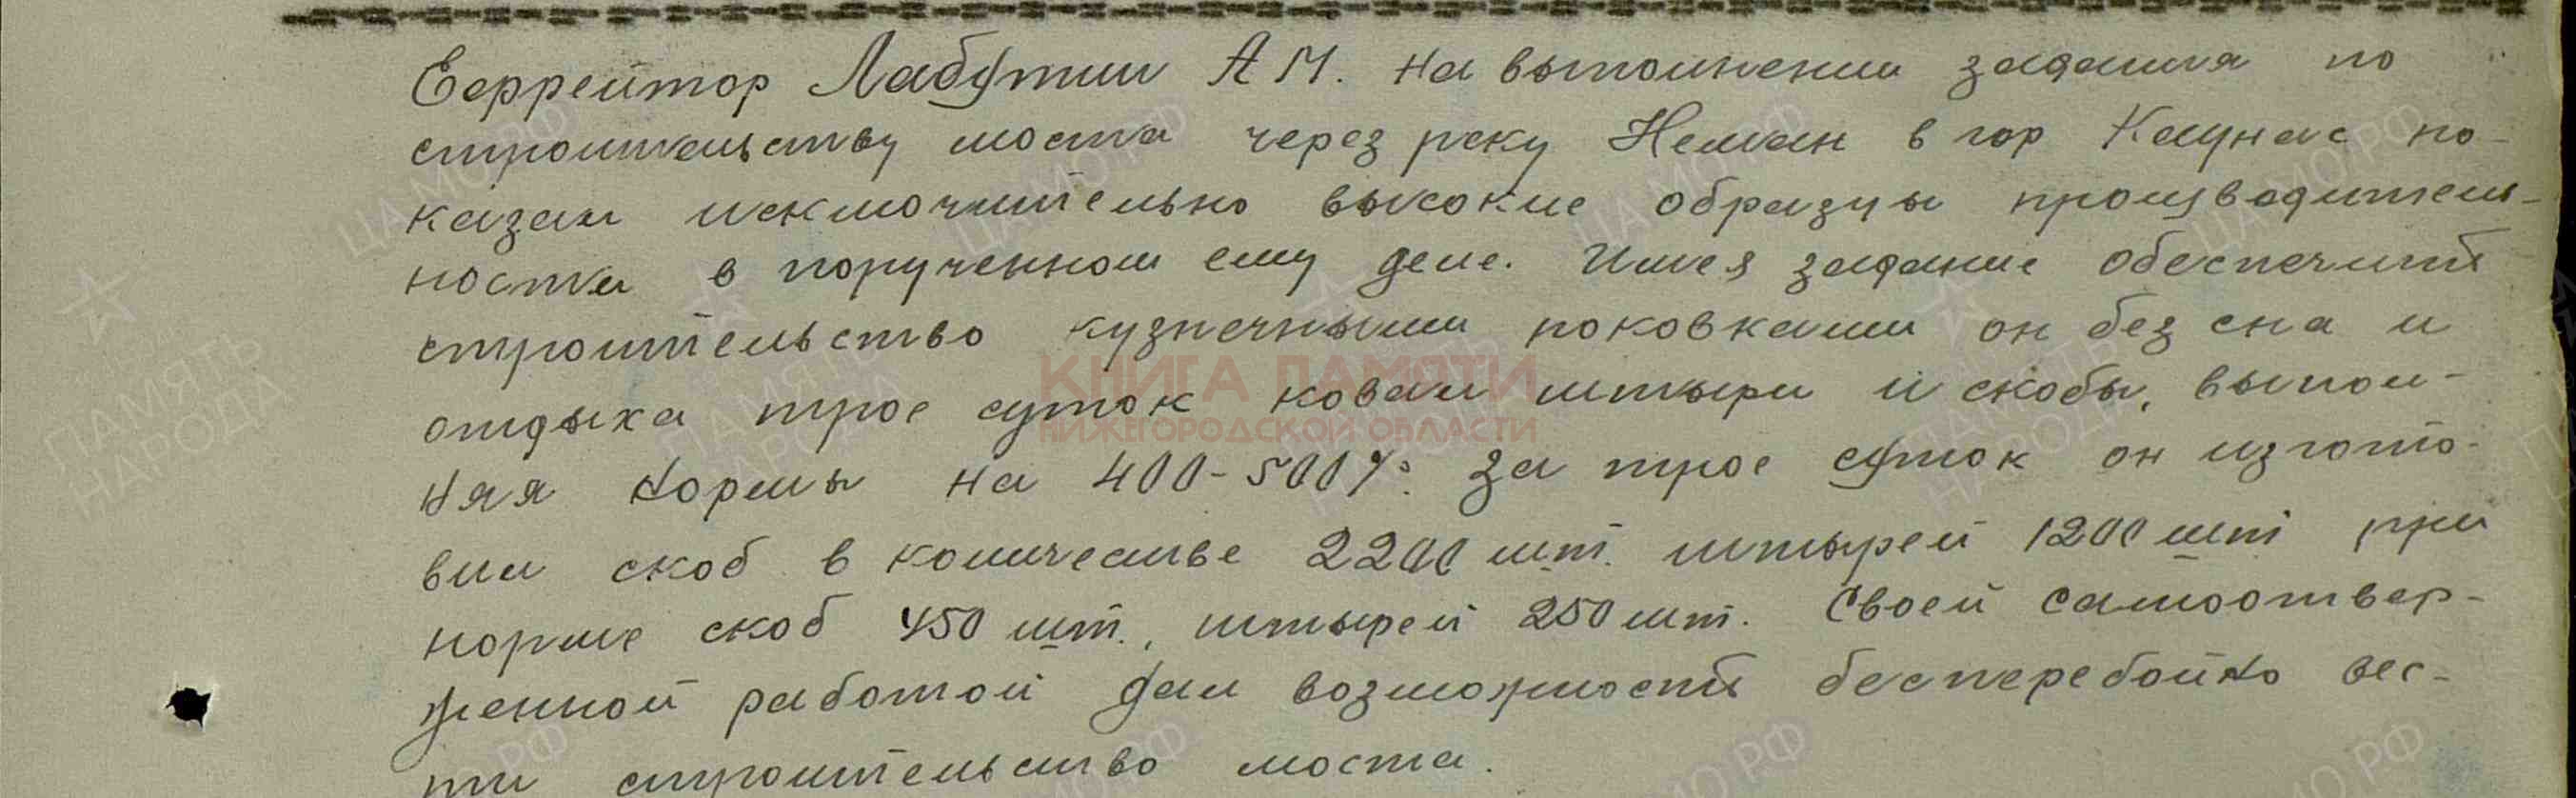 Ефрейтор Лабутин А М. на выполнении задания по
строительству моста через реку Неман в гор Каунас по-
казал исключительно высокие образцы производитель-
ности в порученном ему деле. Имея задание обеспечить
строительство кузнечными поковками он без сна и
отдыха трое суток ковал штыри и скобы, выпол-
няя нормы на 400-500% за трое суток он изгото-
вил скоб в количестве 2200 шт. штырей 1200 шт при
норме скоб 450 шт., штырей 250 шт. Своей самоотвер-
женной работой дал возможность бесперебойно вес-
ти строительство моста.
КНИГА ПАМЯТИ
НИЖЕГОРОДСКОЙ ОБЛАСТИ
ПАМЯТЬ
НАРОДА
ЦАМО РФ